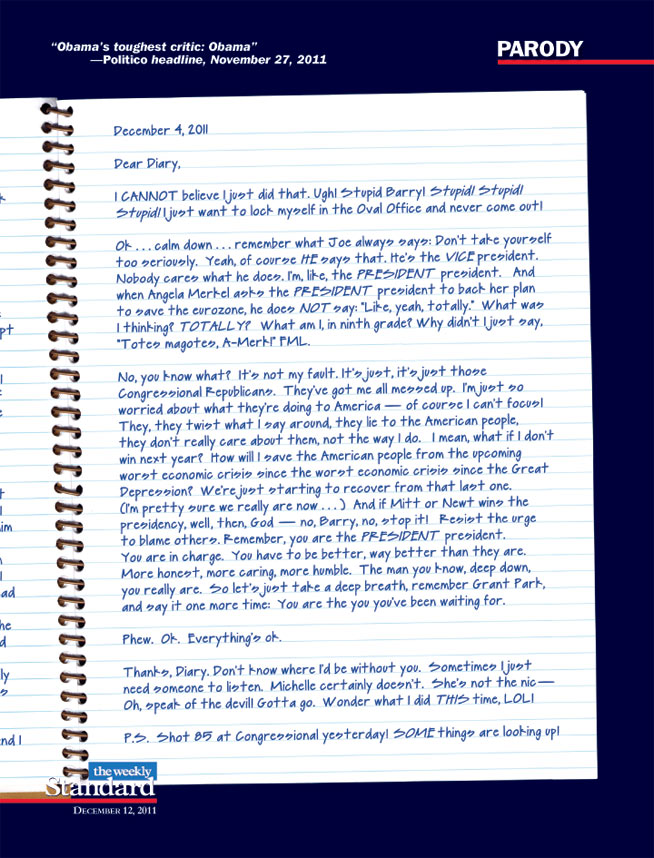 "Obama's toughest critic: Obama"
—Politico headline, November 27, 2011
PARODY
December 4, 2011
Dear Diary,
I CANNOT believe I just did that. Ugh! Stupid Barry! Stupid! Stupid!
Stupid! I just want to lock myself in the Oval Office and never come out!
Ok . . . calm down . . . remember what Joe always says: Don't take yourself
too seriously. Yeah, of course HE says that. He's the VICE president.
Nobody cares what he does. I'm, like, the PRESIDENT president. And
when Angela Merkel asks the PRESIDENT president to back her plan
to save the eurozone, he does NOT say: "Like, yeah, totally." What was
I thinking? TOTALLY? What am I, in ninth grade? Why didn't I just say,
"Totes magotes, A-Merk!" FML.
No, you know what? It's not my fault. It's just, it's just those
Congressional Republicans. They've got me all messed up. I'm just so
worried about what they're doing to America — of course I can't focus!
They, they twist what I say around, they lie to the American people,
they don't really care about them, not the way I do. I mean, what if I don't
win next year? How will I save the American people from the upcoming
worst economic crisis since the worst economic crisis since the Great
Depression? We're just starting to recover from that last one.
(I'm pretty sure we really are now . . . ) And if Mitt or Newt wins the
presidency, well, then, God — no, Barry, no, stop it! Resist the urge
to blame others. Remember, you are the PRESIDENT president.
You are in charge. You have to be better, way better than they are.
More honest, more caring, more humble. The man you know, deep down,
you really are. So let's just take a deep breath, remember Grant Park,
and say it one more time: You are the you you've been waiting for.
Phew. Ok. Everything's ok.
Thanks, Diary. Don't know where I'd be without you. Sometimes I just
need someone to listen. Michelle certainly doesn't. She's not the nic—
Oh, speak of the devil! Gotta go. Wonder what I did THIS time, LOL!
P.S. Shot 85 at Congressional yesterday! SOME things are looking up!
the weekly
Standard
DECEMBER 12, 2011